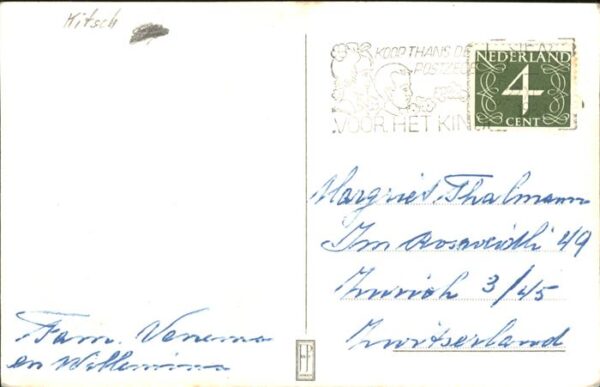 Kitsch
KOOP THANS DE
POSTZEGELS
VOOR HET KIND
NEDERLAND
4
CENT
Margriet Thalmann
Im Rosweidli 49
Zurich 3/45
Zwitserland
Fam. Venema
en Willemina